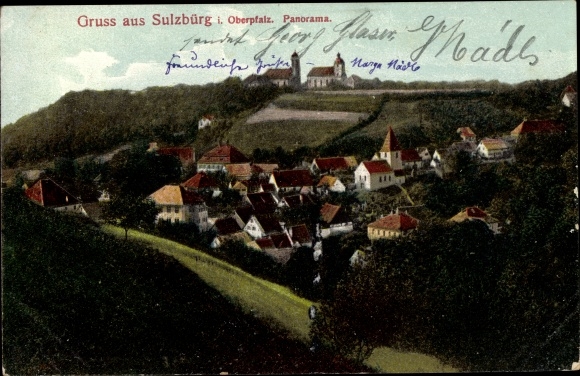 Gruss aus Sulzbürg i. Oberpfalz. Panorama.
sendet Georg Glaser
freundliche Grüße Marga Nädle